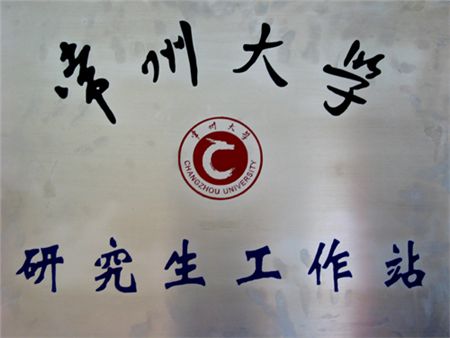 常州大学
常州大学
CHANGZHOU UNIVERSITY
研究生工作站